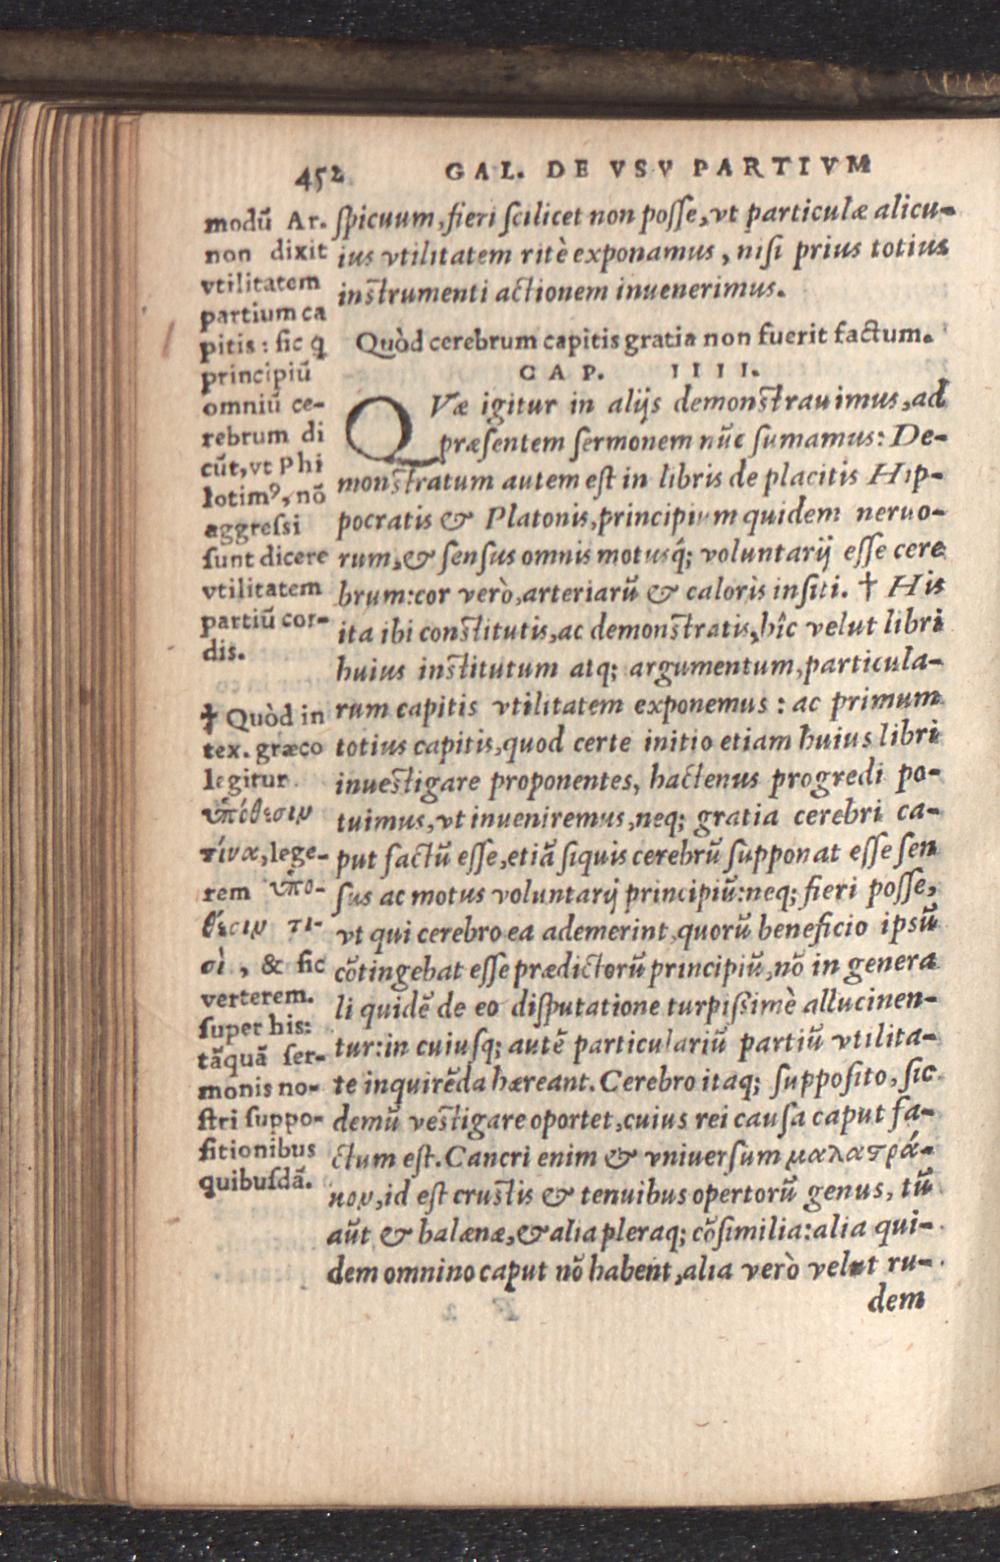 452 GAL. DE VSV PARTIVM
ſpicuum, fieri ſcilicet non poſſe, vt particulæ alicu-
ius vtilitatem ritè exponamus, niſi prius totius
inſtrumenti actionem inuenerimus.
Quòd cerebrum capitis gratia non fuerit factum.
CAP. IIII.
QVæ igitur in alijs demonſtrauimus, ad
præſentem ſermonem nũc ſumamus: De-
monſtratum autem eſt in libris de placitis Hip-
pocratis & Platonis, principium quidem neruo-
rum, & ſenſus omnis motusq́; voluntarij eſſe cere
brum: cor verò, arteriarũ & caloris inſiti. † His
ita ibi conſtitutis, ac demonſtratis, hîc velut libri
huius inſtitutum atq; argumentum, particula-
rum capitis vtilitatem exponemus: ac primum
totius capitis, quod certe initio etiam huius libri
inueſtigare proponentes, hactenus progredi po-
tuimus, vt inueniremus, neq; gratia cerebri ca-
put factũ eſſe, etiã ſiquis cerebrũ ſupponat eſſe ſen
ſus ac motus voluntarij principiũ: neq; fieri poſſe,
vt qui cerebro ea ademerint, quorũ beneficio ipſũ
cõtingebat eſſe prædictorũ principiũ, nõ in genera
li quidẽ de eo diſputatione turpiſſimè allucinen-
tur: in cuiuſq; autẽ particulariũ partiũ vtilita-
te inquirẽda hæreant. Cerebro itaq; ſuppoſito, ſic
demũ veſtigare oportet, cuius rei cauſa caput fa-
ctum eſt. Cancri enim & vniuerſum μαλασρά-
νον, id eſt cruſtis & tenuibus opertorũ genus, tũ
aũt & balænæ, & alia pleraq; cõſimilia: alia qui-
dem omnino caput nõ habent, alia verò velut ru-
dem
modũ Ar.
non dixit
vtilitatem
partium ca
pitis: ſic q
principiũ
omniũ ce-
rebrum di
cũt, vt Phi
lotimꝰ, nõ
aggreſſi
ſunt dicere
vtilitatem
partiũ cor-
dis.
† Quòd in
tex. græco
legitur
ὑπόθεσιν
τίνα, lege-
rem ὑπο-
θέσιν τι-
σὶ, & ſic
verterem.
ſuper his:
tãquã ſer-
monis no-
ſtri ſuppo-
ſitionibus
quibuſdã.